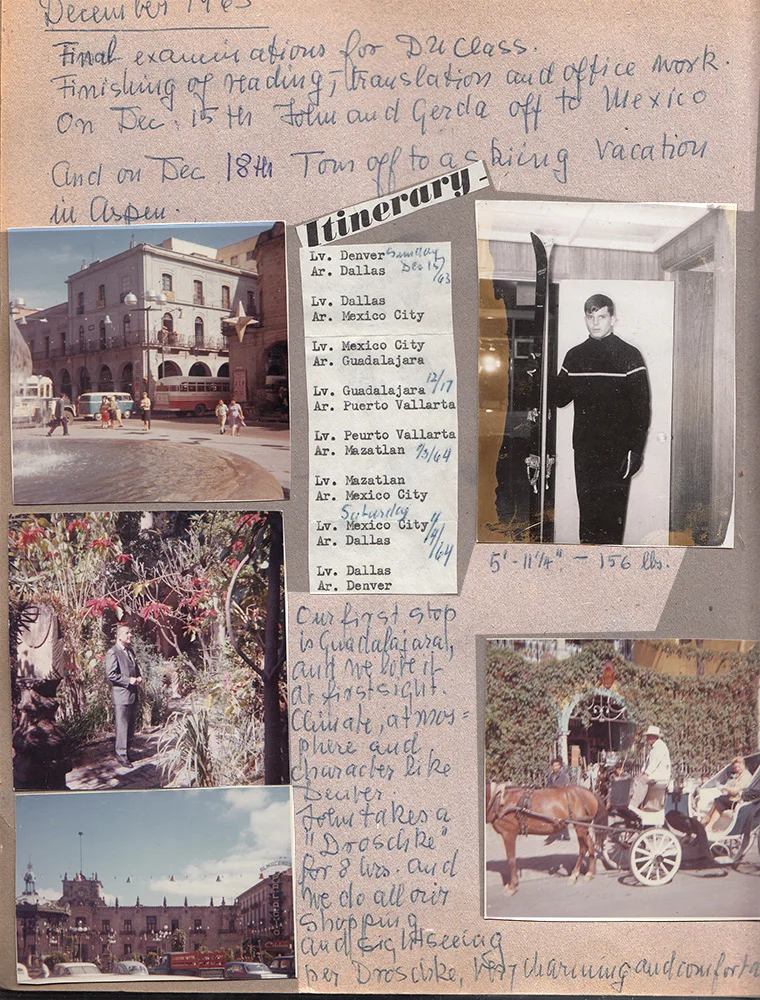 December 1963
Final examinations for DU class.
Finishing of reading, translation and office work.
On Dec. 15th John and Gerda off to Mexico
And on Dec 18th Tom off to a skiing vacation
in Aspen.
Itinerary -
Lv. Denver Sunday
Ar. Dallas Dec 15/63
Lv. Dallas
Ar. Mexico City
Lv. Mexico City
Ar. Guadalajara
Lv. Guadalajara 12/17
Ar. Puerto Vallarta
Lv. Peurto Vallarta
Ar. Mazatlan 1/3/64
Lv. Mazatlan
Ar. Mexico City
Saturday
Lv. Mexico City 1/4/64
Ar. Dallas
Lv. Dallas
Ar. Denver
5' - 11¼" - 156 lbs.
Our first stop
is Guadalajara,
and we love it
at first sight.
Climate, atmos=
phere and
character like
Denver.
John takes a
"Droschke"
for 8 hrs. and
we do all our
shopping
and sightseeing
per Droschke, very charming and comforta